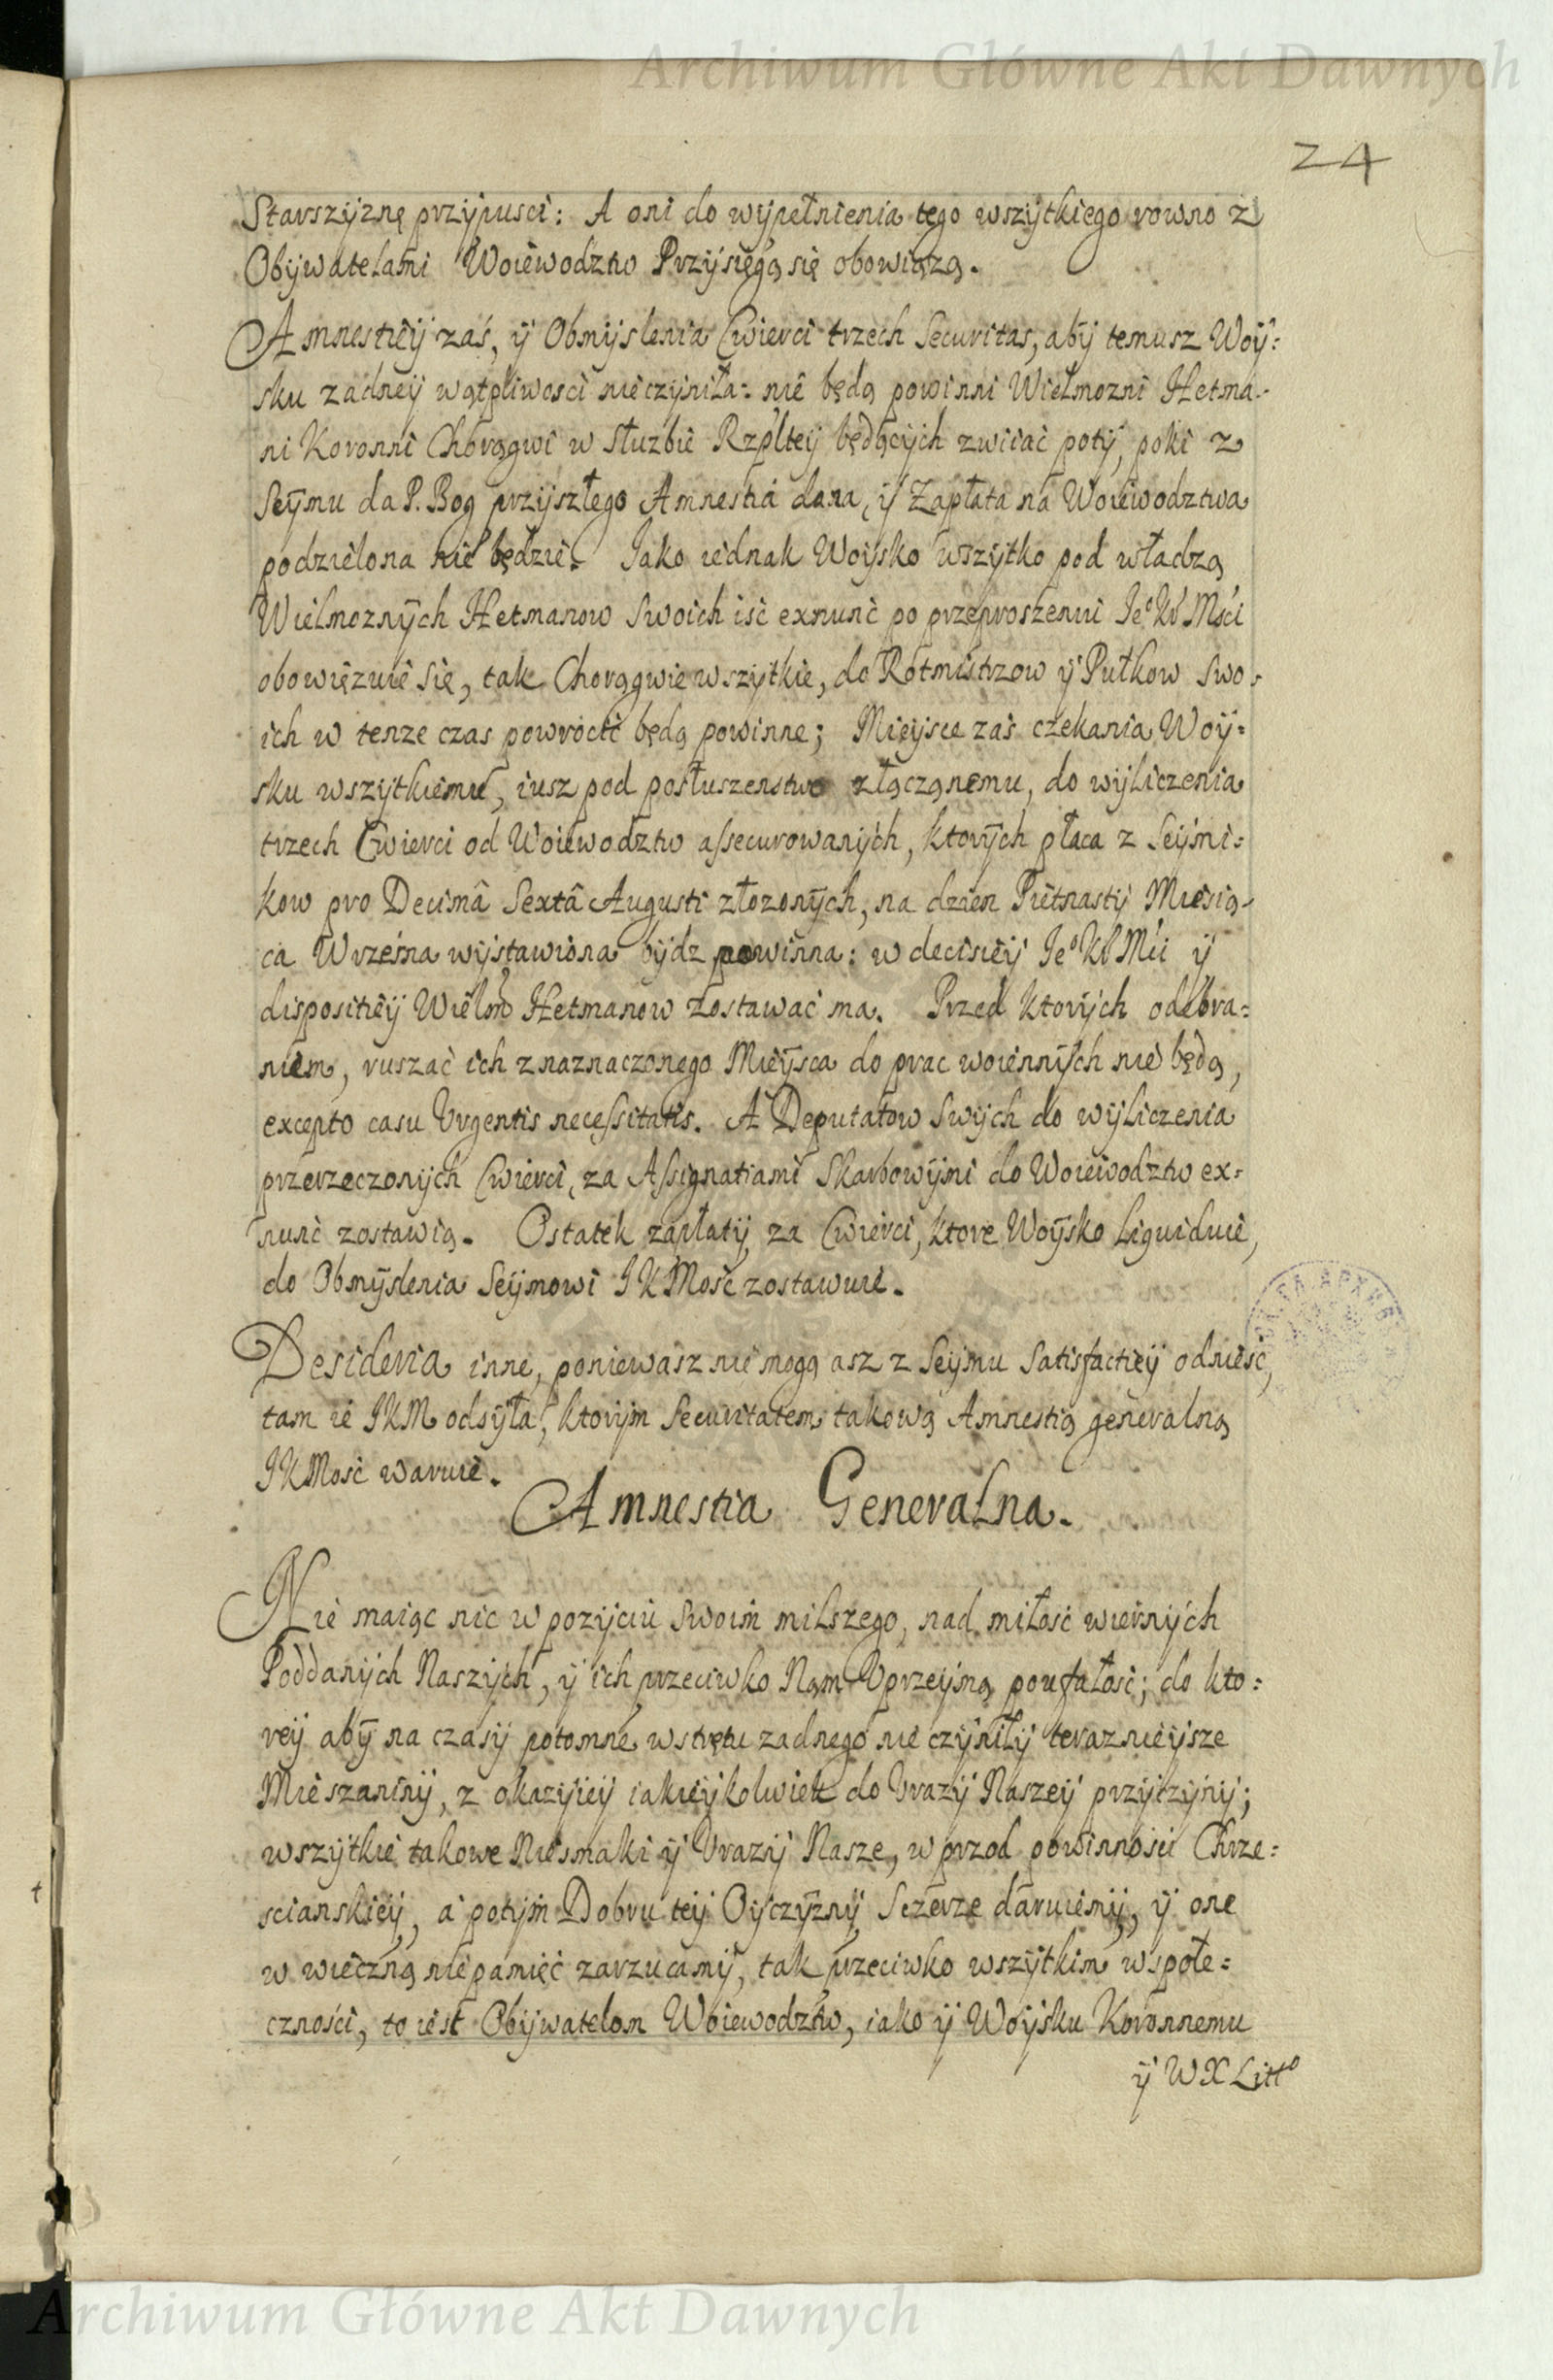 Archiwum Główne Akt Dawnych
24
Starszÿznę przÿpusci: A oni do wÿpełnienia tego wszÿtkiego rowno z
Obÿwatelami Woiewodztw Przÿsięgą się obowiążą.
Amnestieÿ zaś, ÿ Obmÿslenia Cwierci trzech Securitas, abÿ temusz Woÿ=
sku zadneÿ wątpliwosci nieczÿniła: nie będą powinni Wielmozni Hetma-
ni Koronni Chorągwi w słuzbie Rzplteÿ będącÿch zwiiać potÿ, poki z
Seÿmu da P. Bog przÿszłego Amnestia dana, ÿ Zapłata na Woiewodztwa
podzielona nie będzie. Jako iednak Woÿsko wszÿtko pod władzą
Wielmoznÿch Hetmanow swoich iść exnunc po przeproszeniu Jeº Kr Mśći
obowięzuie się, tak Chorągwie wszÿtkie, do Rotmistrzow ÿ Pułkow swo-
ich w tenze czas powrocić będą powinne; Mieÿsce zaś czekania Woÿ=
sku wszÿtkiemu, iusz pod posłuszenstwo złączonemu, do wÿliczenia
trzech Cwierci od Woiewodztw assecurowanÿch, ktorÿch płaca z Seÿmi=
kow pro Decimâ Sextâ Augusti złozonÿch, na dzien Piętnastÿ Miesią-
ca Września wÿstawiona bÿdz powinna: w decisieÿ Jeº Kr Mći ÿ
dispositieÿ Wielm Hetmanow zostawać ma. Przed ktorÿch odebra=
niem, ruszać ich z naznaczonego Mieÿsca do prac woiennÿch nie będą,
excepto casu Urgentis necessitatis. A Deputatow swÿch do wÿliczenia
przerzeczonÿch Cwierci, za Assignatiami Skarbowÿmi do Woiewodztw ex=
nunc zostawią. Ostatek zapłatÿ za Cwierci, ktore Woÿsko Liquiduie,
do Obmÿslenia Seÿmowi J K Mość zostawuie.
Desideria inne, poniewasz nie mogą asz z Seÿmu Satisfactieÿ odnieść,
tam ie JKM odsÿła, ktorÿm Securitatem takową Amnestią generalną
JKMość waruie.
Amnestia Generalna.
Nie maiąc nic w pozÿciu swoim milszego, nad miłość wiernÿch
Poddanÿch Naszÿch, ÿ ich przeciwko Nam Uprzeÿmą poufałość; do kto=
reÿ abÿ na czasÿ potomne wstrętu zadnego nie czÿniłÿ teraznieÿsze
Mieszaninÿ, z okazÿieÿ iakieÿkolwiek do Urazÿ Naszeÿ przÿczÿnÿ;
wszÿtkie takowe Niesmaki ÿ Urazÿ Nasze, w przod powinności Chrze=
scianskieÿ, a potÿm Dobru teÿ Oÿczÿznÿ Sczerze daruiemÿ, ÿ one
w wieczną niepamięć zarzucamÿ, tak przeciwko wszÿtkim wspołe=
czności, to iest Obÿwatelom Woiewodztw, iako ÿ Woÿsku Koronnemu
ÿ W X Littº
Archiwum Główne Akt Dawnych